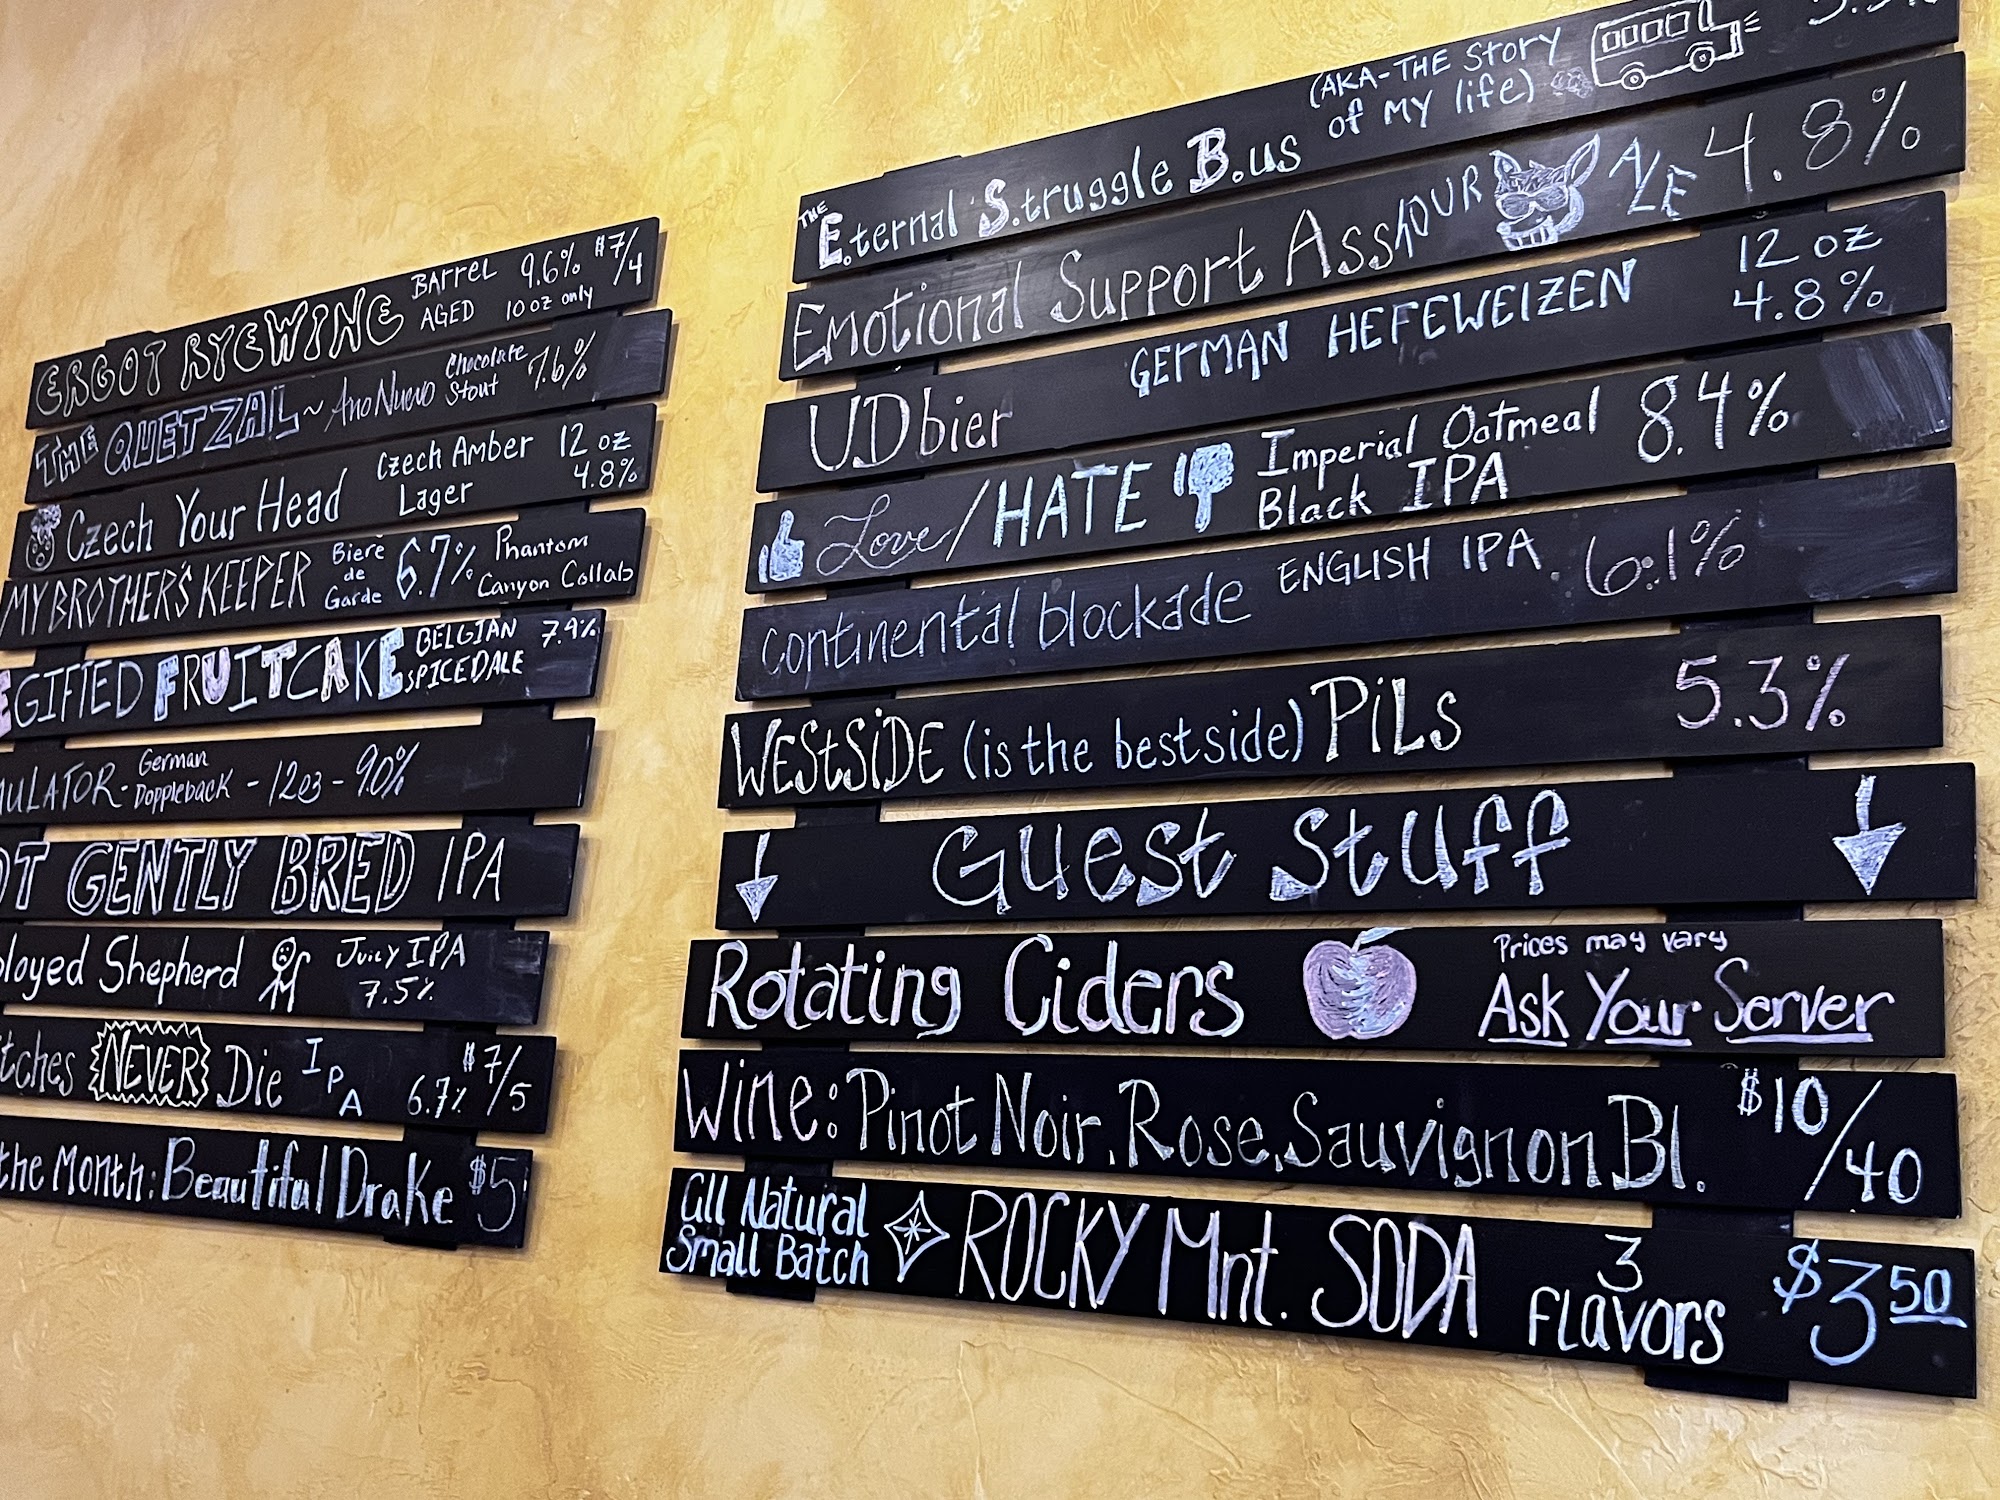 ERGOT RYEWINE BARREL AGED 9.6% 10 oz only $7/4
THE QUETZAL ~ Ano Nuevo Chocolate Stout 7.6%
Czech Your Head Czech Amber Lager 12 oz 4.8%
MY BROTHER'S KEEPER Biere de Garde 6.7% Phantom Canyon Collab
EGIFTED FRUITCAKE BELGIAN SPICED ALE 7.4%
ULATOR - German Doppleback - 12oz - 9.0%
OT GENTLY BRED IPA
ployed Shepherd Juicy IPA 7.5%
tches NEVER Die IPA 6.7% $7/5
the Month: Beautiful Drake $5
THE E.ternal S.truggle B.us (AKA-THE Story of MY life)
Emotional Support AssHOUR ALE 4.8%
UDbier GERMAN HEFEWEIZEN 12 oz 4.8%
Love/HATE Imperial Oatmeal Black IPA 8.4%
continental blockade ENGLISH IPA. 6.1%
WESTSIDE (is the bestside) PiLs 5.3%
Guest Stuff
Rotating Ciders Prices may vary Ask Your Server
Wine: Pinot Noir, Rose, Sauvignon Bl. $10/40
All Natural Small Batch ROCKY Mnt. SODA 3 FLavors $3.50